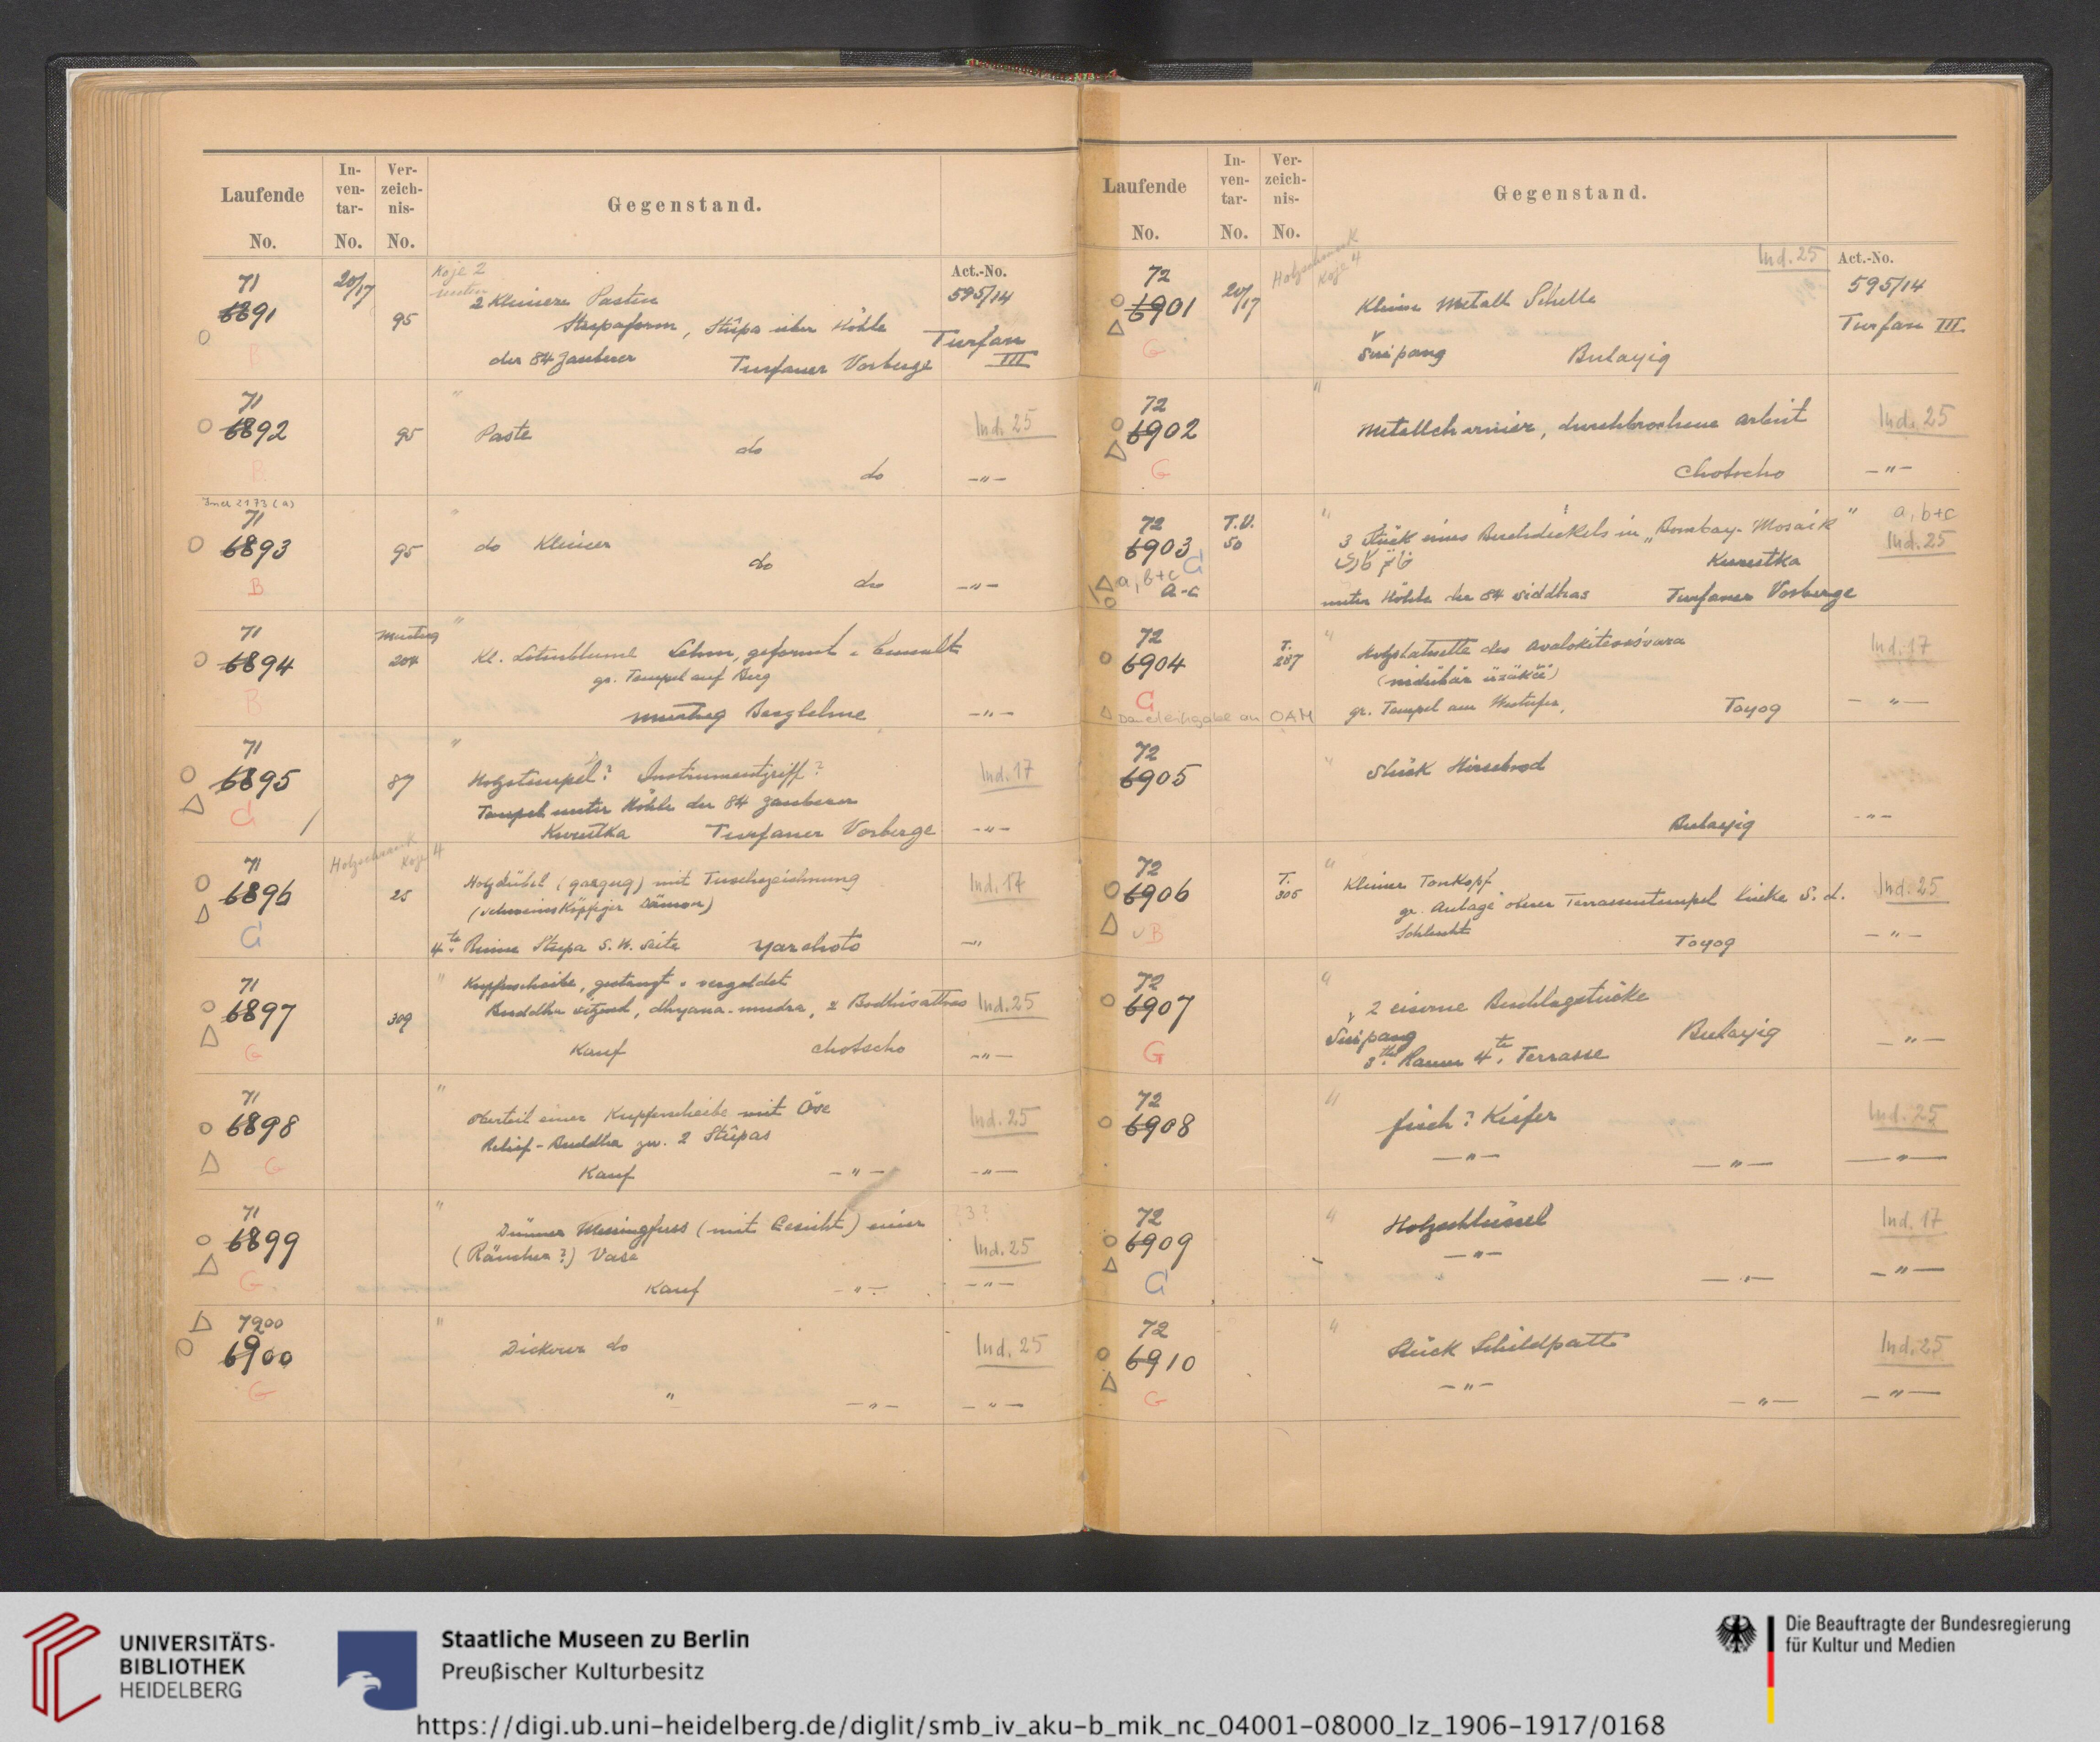 Laufende No.
In-ven-tar- No.
Ver-zeich-nis- No.
Gegenstand.
Koje 2
unten
Act.-No.
71
6891
20/17
95
2 Kleinere Pasten
Stupaform, Stûpa über Höhle
der 84 Zauberer
Turfaner Vorberge
595/14
Turfan
III
B
71
6892
95
"
Paste
do
do
Ind. 25
-"-
B
71
6893
95
"
do Kleiner
do
do
-"-
B
71
6894
Murtuq
204
"
Kl. Lotusblume Lehm, geformt u. bemalt
gr. Tempel auf Berg
Murtuq Berglehne
-"-
B
71
6895
87
"
Holzstempel? Instrumentgriff?
Tempel unter Höhle der 84 Zauberer
Kurutka Turfaner Vorberge
Ind. 17
-"-
Holzschrank
Koje 4
71
6896
25
Holzdübel (qazguq) mit Tuschzeichnung
(schweinsköpfiger Dämon)
4te Ruine Stupa S. W. Seite Yarchoto
Ind. 17
-"
71
6897
309
"
Kupferscheibe, gestanzt u. vergoldet
Buddha sitzend, dhyana-mudra, 2 Bodhisattvas
Kauf Chotscho
Ind. 25
-"-
G
71
6898
"
Oberteil einer Kupferscheibe mit Öse
Relief-Buddha zw. 2 Stûpas
Kauf -"-
Ind. 25
-"-
G
71
6899
"
Dünner Messingfuss (mit Gesicht) einer
(Räucher?) Vase
Kauf -"-
Ind. 25
-"-
G
7200
6900
"
Dickerer do
" -"-
Ind. 25
-"-
G
Laufende No.
In-ven-tar- No.
Ver-zeich-nis- No.
Gegenstand.
Holzschrank
Koje 4
Ind. 25
Act.-No.
72
6901
20/17
Kleine Metall Schelle
Šuipang Bulayiq
595/14
Turfan III.
G
72
6902
"
Metallcharnier, durchbrochene Arbeit
Chotscho
Ind. 25
-"-
G
72
6903
T.V.
50
a, b+c
a-c
"
3 Stück eines Buchdeckels in „Bombay-Mosaik"
خاتم کاری
Kurutka
unter Höhle der 84 Siddhas Turfaner Vorberge
a, b+c
Ind. 25
72
6904
T.
287
"
Holzstatuette des Avalokiteśvara
gr. Tempel am Westufer, Toyoq
Ind. 17
-"-
Dauerleihgabe an OAM
72
6905
"
Stück Hirsebrod
Bulayiq
-"-
72
6906
T.
305
"
Kleiner Tonkopf
gr. Anlage oberer Terrassentempel linke S. d.
Schlucht
Toyoq
Ind. 25
-"-
B
72
6907
"
2 eiserne Beschlagstücke
Šuipang Bulayiq
3ter Raum 4te Terrasse
-"-
G
72
6908
"
Fisch? Kiefer
-"- -"-
Ind. 25
-"-
72
6909
"
Holzschlüssel
-"- -"-
Ind. 17
-"-
72
6910
"
Stück Schildpatt
-"- -"-
Ind. 25
-"-
G
UNIVERSITÄTS-
BIBLIOTHEK
HEIDELBERG
Staatliche Museen zu Berlin
Preußischer Kulturbesitz
Die Beauftragte der Bundesregierung
für Kultur und Medien
https://digi.ub.uni-heidelberg.de/diglit/smb_iv_aku-b_mik_nc_04001-08000_lz_1906-1917/0168